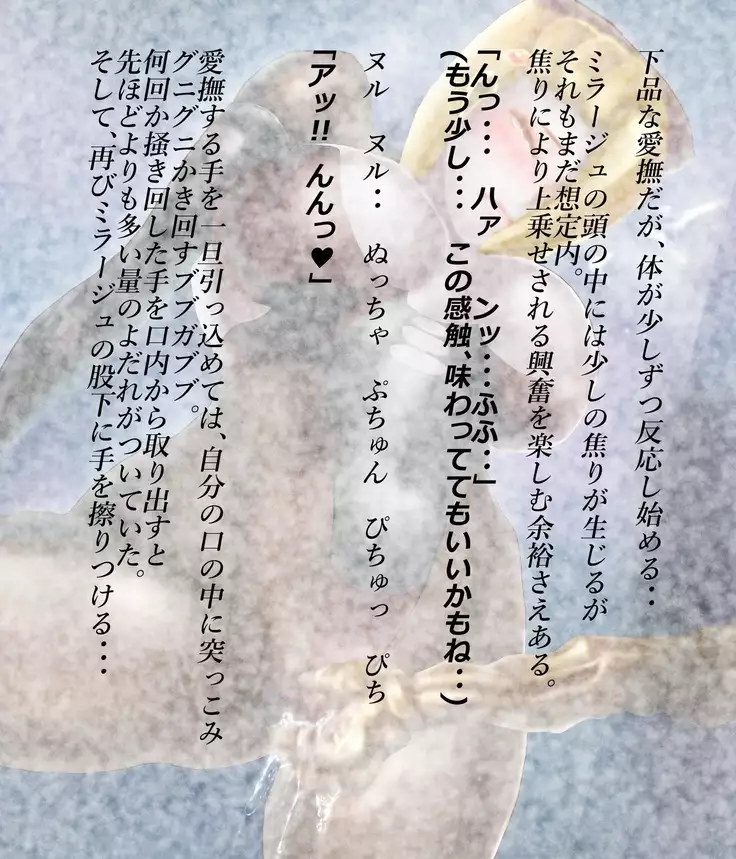 下品な愛撫だが、体が少しずつ反応し始める・・
ミラージュの頭の中には少しの焦りが生じるが
それもまだ想定内。
焦りにより上乗せされる興奮を楽しむ余裕さえある。
「んっ・・・　ハァ　　ンッ・・・ふふ・・」
(もう少し・・・　この感触、味わっててもいいかもね・・)
ヌル　ヌル・・　ぬっちゃ　ぷちゅん　ぴちゅっ　ぴち
「アッ!!　んんっ♥」
愛撫する手を一旦引っ込めては、自分の口の中に突っこみ
グニグニかき回すブブガブブ。
何回か掻き回した手を口内から取り出すと
先ほどよりも多い量のよだれがついていた。
そして、再びミラージュの股下に手を擦りつける・・・